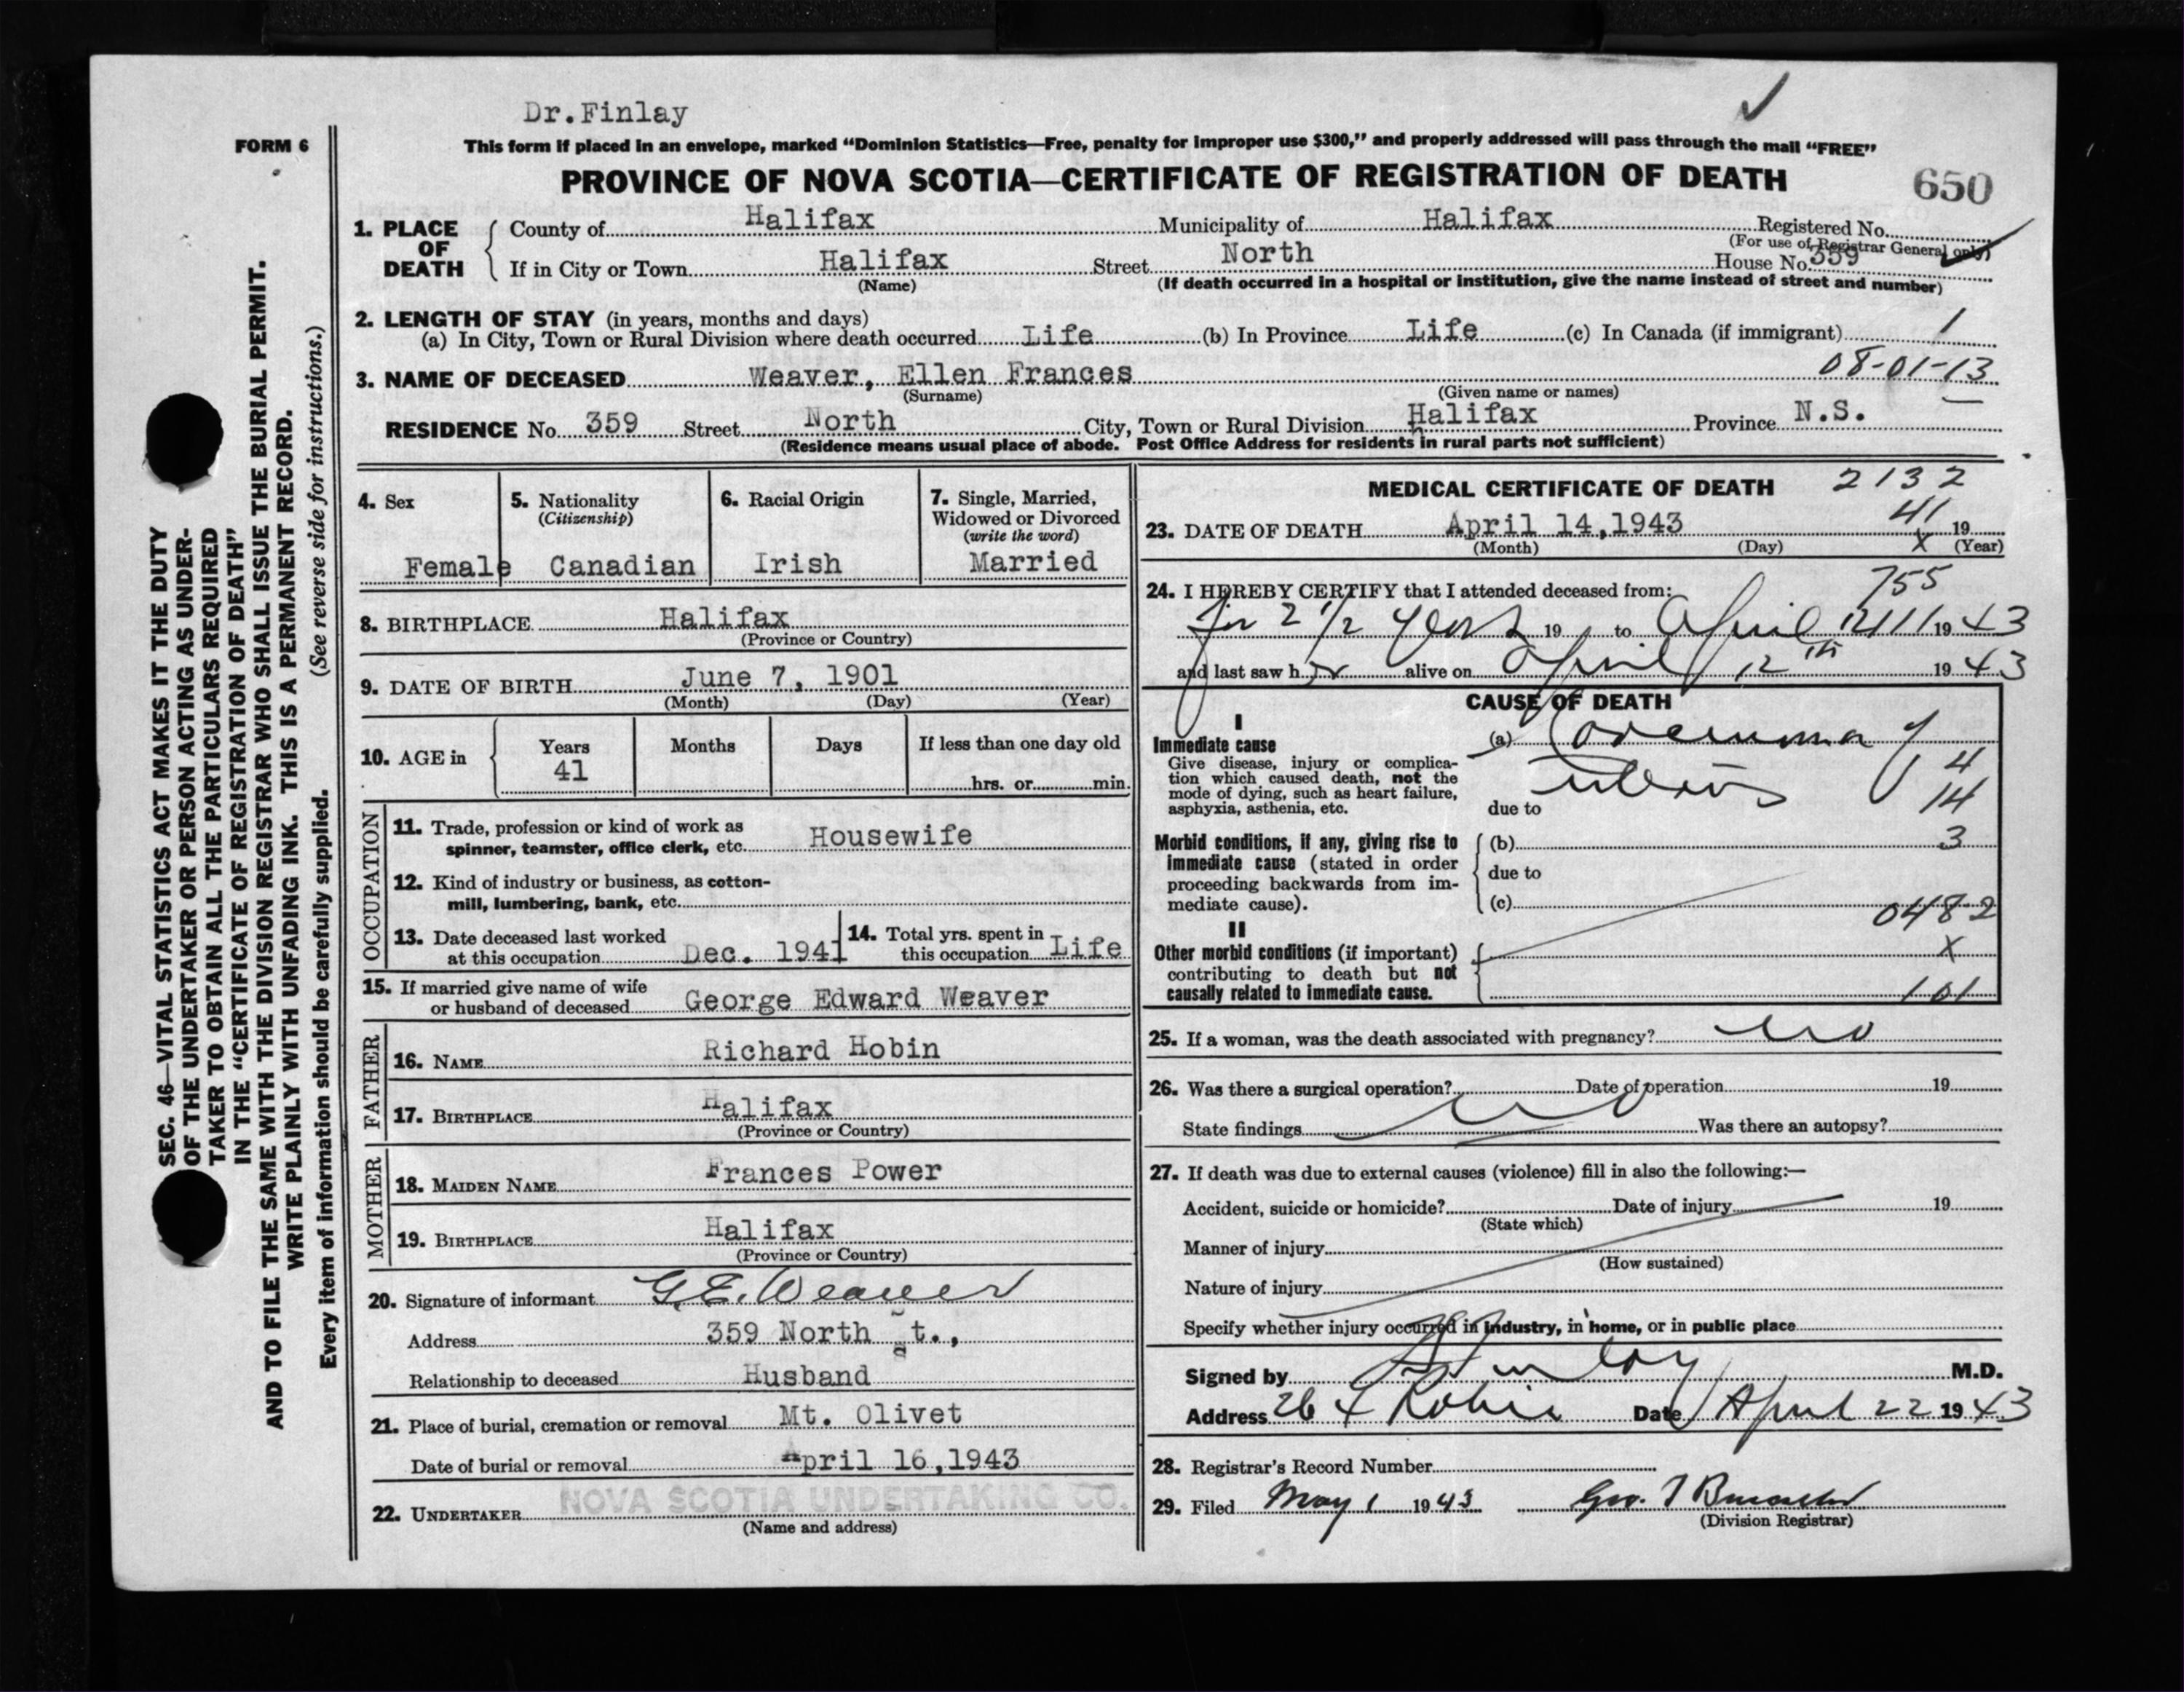 Dr.Finlay
FORM 6
This form if placed in an envelope, marked "Dominion Statistics—Free, penalty for improper use $300," and properly addressed will pass through the mail "FREE"
PROVINCE OF NOVA SCOTIA—CERTIFICATE OF REGISTRATION OF DEATH
650
1. PLACE OF DEATH
County of Halifax Municipality of Halifax Registered No.
(For use of Registrar General only)
If in City or Town Halifax Street North House No. 359
(Name) (If death occurred in a hospital or institution, give the name instead of street and number)
2. LENGTH OF STAY (in years, months and days)
(a) In City, Town or Rural Division where death occurred Life (b) In Province Life (c) In Canada (if immigrant) 1
08-01-13
3. NAME OF DECEASED Weaver, Ellen Frances
(Surname) (Given name or names)
RESIDENCE No. 359 Street North City, Town or Rural Division Halifax Province N.S.
(Residence means usual place of abode. Post Office Address for residents in rural parts not sufficient)
4. Sex
Female
5. Nationality
(Citizenship)
Canadian
6. Racial Origin
Irish
7. Single, Married,
Widowed or Divorced
(write the word)
Married
8. BIRTHPLACE Halifax
(Province or Country)
9. DATE OF BIRTH June 7, 1901
(Month) (Day) (Year)
10. AGE in
Years Months Days If less than one day old
41
hrs. or min.
OCCUPATION
11. Trade, profession or kind of work as
spinner, teamster, office clerk, etc. Housewife
12. Kind of industry or business, as cotton-
mill, lumbering, bank, etc.
13. Date deceased last worked
at this occupation Dec. 1941
14. Total yrs. spent in
this occupation Life
15. If married give name of wife
or husband of deceased George Edward Weaver
FATHER
16. NAME Richard Hobin
17. BIRTHPLACE Halifax
(Province or Country)
MOTHER
18. MAIDEN NAME Frances Power
19. BIRTHPLACE Halifax
(Province or Country)
20. Signature of informant G.E. Weaver
Address 359 North St.,
Relationship to deceased Husband
21. Place of burial, cremation or removal Mt. Olivet
Date of burial or removal April 16,1943
22. UNDERTAKER NOVA SCOTIA UNDERTAKING CO.
(Name and address)
MEDICAL CERTIFICATE OF DEATH
2132
41
23. DATE OF DEATH April 14,1943 19
(Month) (Day) X (Year)
755
24. I HEREBY CERTIFY that I attended deceased from:
for 2 1/2 years 19 to April 1943
and last saw her alive on April 12th 1943
CAUSE OF DEATH
I
Immediate cause
Give disease, injury or complica-
tion which caused death, not the
mode of dying, such as heart failure,
asphyxia, asthenia, etc.
(a) Carcinoma of
uterus
4
14
due to
Morbid conditions, if any, giving rise to
immediate cause (stated in order
proceeding backwards from im-
mediate cause).
(b) 3
due to
(c) 0482
II
Other morbid conditions (if important)
contributing to death but not
causally related to immediate cause.
X
101
25. If a woman, was the death associated with pregnancy? no
26. Was there a surgical operation? no Date of operation 19
State findings Was there an autopsy?
27. If death was due to external causes (violence) fill in also the following:—
Accident, suicide or homicide? Date of injury 19
(State which)
Manner of injury
(How sustained)
Nature of injury
Specify whether injury occurred in industry, in home, or in public place
Signed by Finlay M.D.
Address 264 Robie Date April 22 1943
28. Registrar's Record Number
29. Filed May 1 1943
(Division Registrar)
SEC. 46—VITAL STATISTICS ACT MAKES IT THE DUTY
OF THE UNDERTAKER OR PERSON ACTING AS UNDER-
TAKER TO OBTAIN ALL THE PARTICULARS REQUIRED
IN THE "CERTIFICATE OF REGISTRATION OF DEATH"
AND TO FILE THE SAME WITH THE DIVISION REGISTRAR WHO SHALL ISSUE THE BURIAL PERMIT.
WRITE PLAINLY WITH UNFADING INK. THIS IS A PERMANENT RECORD.
Every item of information should be carefully supplied. (See reverse side for instructions.)